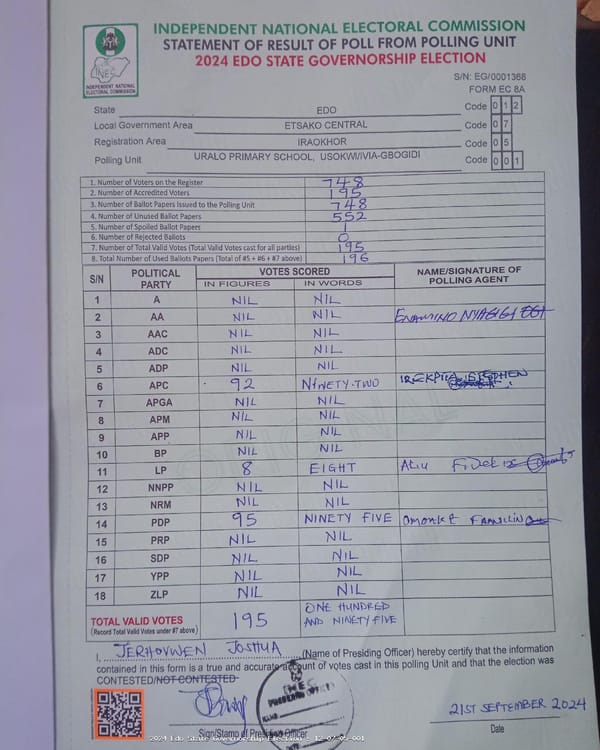 INDEPENDENT NATIONAL ELECTORAL COMMISSION
STATEMENT OF RESULT OF POLL FROM POLLING UNIT
2024 EDO STATE GOVERNORSHIP ELECTION
INEC
INDEPENDENT NATIONAL
ELECTORAL COMMISSION
S/N: EG/0001368
FORM EC 8A
State EDO Code 0 1 2
Local Government Area ETSAKO CENTRAL Code 0 7
Registration Area IRAOKHOR Code 0 5
Polling Unit URALO PRIMARY SCHOOL, USOKWI/IVIA-GBOGIDI Code 0 0 1
1. Number of Voters on the Register 748
2. Number of Accredited Voters 195
3. Number of Ballot Papers Issued to the Polling Unit 748
4. Number of Unused Ballot Papers 552
5. Number of Spoiled Ballot Papers 1
6. Number of Rejected Ballots 0
7. Number of Total Valid Votes (Total Valid Votes cast for all parties) 195
8. Total Number of Used Ballots Papers (Total of #5 + #6 + #7 above) 196
S/N POLITICAL PARTY VOTES SCORED NAME/SIGNATURE OF POLLING AGENT
IN FIGURES IN WORDS
1 A NIL NIL
2 AA NIL NIL
3 AAC NIL NIL
4 ADC NIL NIL
5 ADP NIL NIL
6 APC 92 NINETY-TWO STEPHEN
7 APGA NIL NIL
8 APM NIL NIL
9 APP NIL NIL
10 BP NIL NIL
11 LP 8 EIGHT Aliu
12 NNPP NIL NIL
13 NRM NIL NIL
14 PDP 95 NINETY FIVE
15 PRP NIL NIL
16 SDP NIL NIL
17 YPP NIL NIL
18 ZLP NIL NIL
TOTAL VALID VOTES 195 ONE HUNDRED AND NINETY FIVE
(Record Total Valid Votes under #7 above)
I, JERHOVWEN JOSHUA (Name of Presiding Officer) hereby certify that the information
contained in this form is a true and accurate account of votes cast in this polling Unit and that the election was
CONTESTED/NOT CONTESTED
INEC
PRESIDING OFFICER
21ST SEPTEMBER 2024
Sign/Stamp of Presiding Officer Date
2024 Edo State Governorship Election - 12-07-05-001